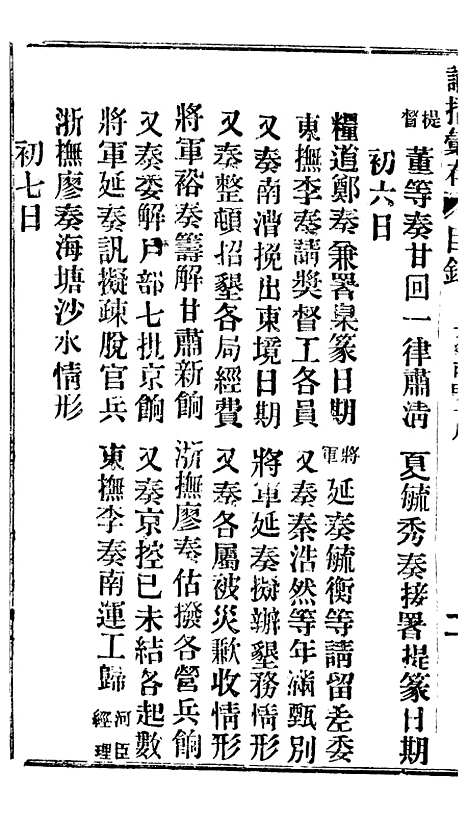 諭摺彙存 目錄
提督董等奏甘回一律肅清 夏毓秀奏接署提篆日期
初六日
糧道鄭奏兼署臬篆日期 將軍延奏毓衡等請留差委
東撫李奏請獎督工各員 又奏秦浩然等年滿甄別
又奏南漕挽出東境日期 將軍延奏擬辦墾務情形
又奏整頓招墾各局經費 又奏各屬被災歉收情形
將軍裕奏籌解甘肅新餉 浙撫廖奏估撥各營兵餉
又奏委解戶部七批京餉 又奏京控已未結各起數
將軍延奏訊擬疎脫官兵 東撫李奏南運工歸河臣經理
浙撫廖奏海塘沙水情形
初七日